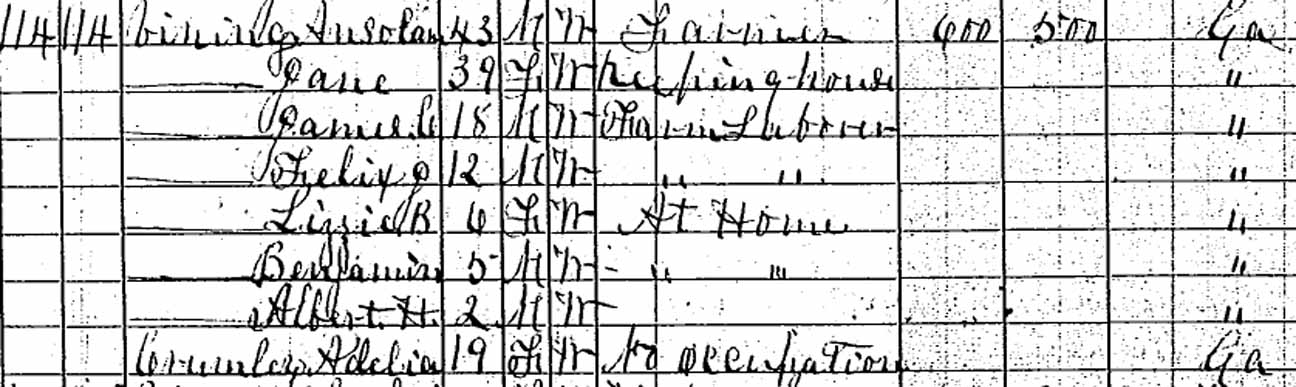 114 114 43 M W Farmer 600 500 Ga
Jane 39 F W Keeping house "
James 18 M W Farm Laborer "
Felix J 12 M W " " "
Lizzie B 6 F W At Home "
Benjamin 5 M W " " "
Albert H. 2 M W "
Crumley Adelia 19 F W No occupation Ga